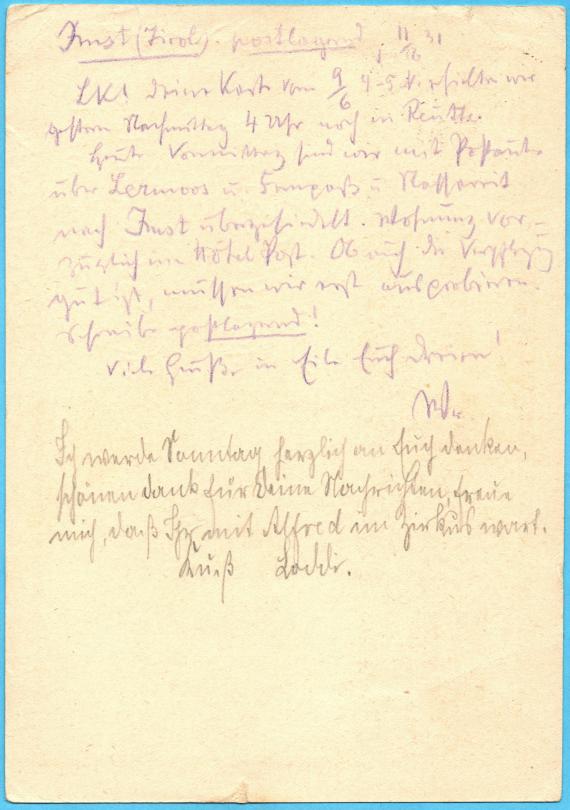 Imst (Tirol). postlagernd, 11/6 31
LK! Deine Karte vom 9/6 4-5 N. erhielten wir
gestern Nachmittag 4 Uhr noch in Reutte.
Heute Vormittag sind wir mit Postauto
über Lermoos u. Fernpaß u Nassereit
nach Imst übergesiedelt. Wohnung vor-
züglich im Hotel Post. Ob auch die Verpflegung
gut ist, müssen wir erst ausprobieren.
Schreibe postlagernd!
Viele Grüße in Eile Euch dreien!
Ich werde Sonntag herzlich an Euch denken,
schönen dank für Deine Nachrichten, freue
mich, daß Ihr mit Alfred im Zirkus wart.
Kuß